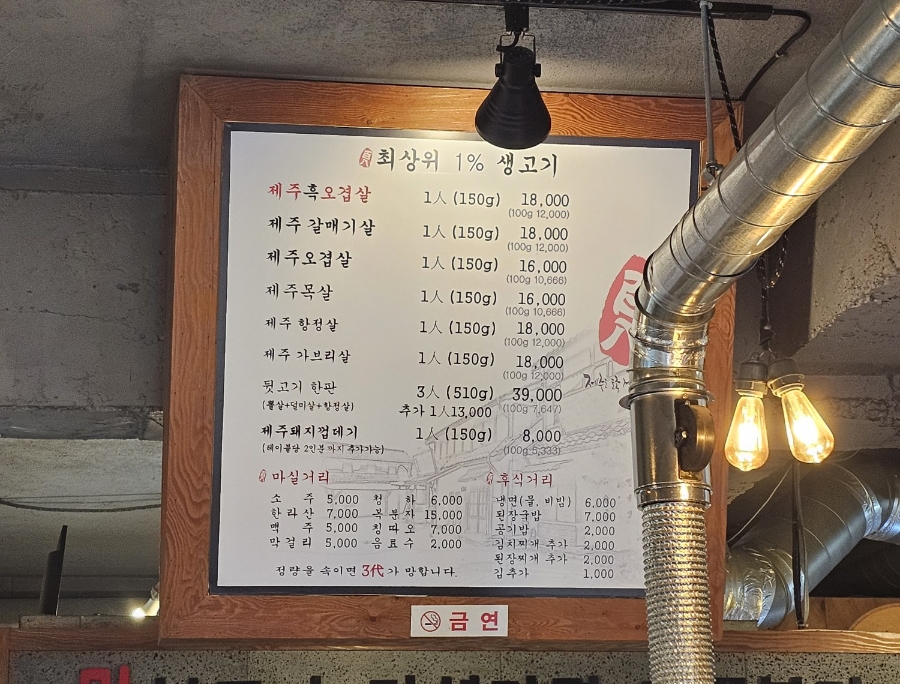 최상위 1% 생고기
제주흑오겹살 1人 (150g) 18,000
(100g 12,000)
제주 갈매기살 1人 (150g) 18,000
(100g 12,000)
제주오겹살 1人 (150g) 16,000
(100g 10,666)
제주목살 1人 (150g) 16,000
(100g 10,666)
제주 항정살 1人 (150g) 18,000
(100g 12,000)
제주 가브리살 1人 (150g) 18,000
(100g 12,000)
뒷고기 한판 3人 (510g) 39,000
(뽈살+덜미살+항정살) 추가 1人 13,000 (100g 7,647)
제주돼지껍데기 1人 (150g) 8,000
(테이블당 2인분 까지 추가가능) (100g 5,333)
마실거리
소 주 5,000 청 하 6,000
한라산 7,000 복분자 15,000
맥 주 5,000 칭따오 7,000
막걸리 5,000 음료수 2,000
후식거리
냉면(물, 비빔) 6,000
된장국밥 7,000
공기밥 2,000
김치찌개 추가 2,000
된장찌개 추가 2,000
김추가 1,000
정량을 속이면 3代가 망합니다.
금연